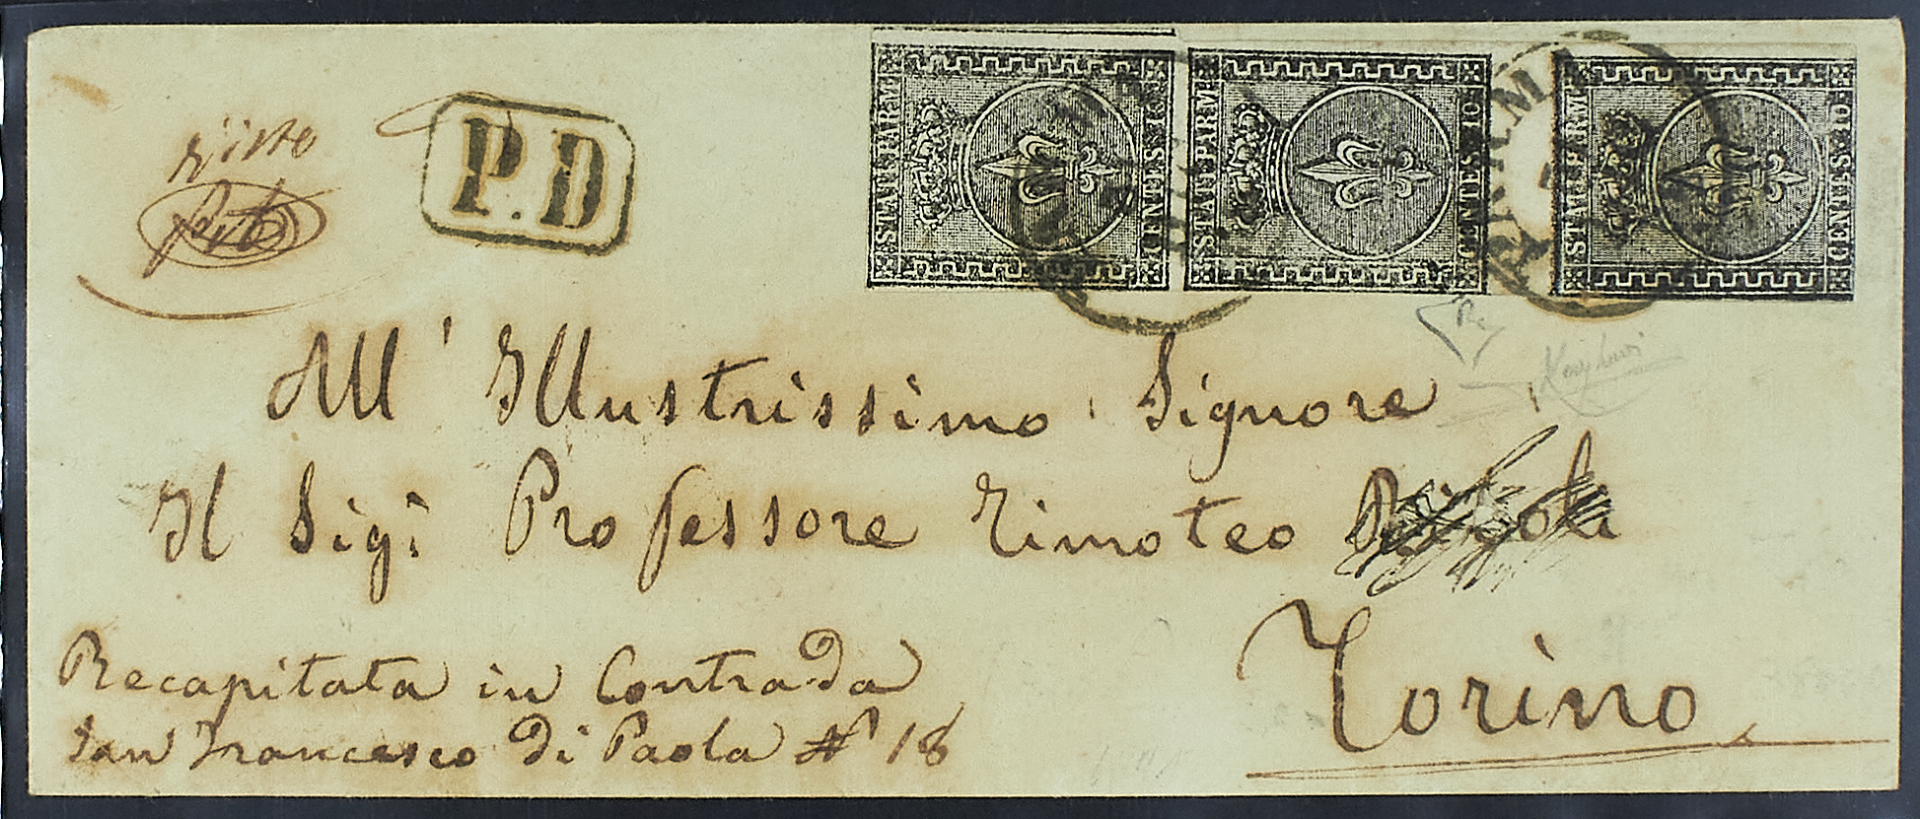 STATI PARM. CENTES. 10
STATI PARM. CENTES. 10
STATI PARM. CENTES. 10
PARMA
P.D
All' Illustrissimo Signore
Il Sigr Professore Timoteo
Torino
Recapitata in Contrada
San Francesco di Paola N° 18